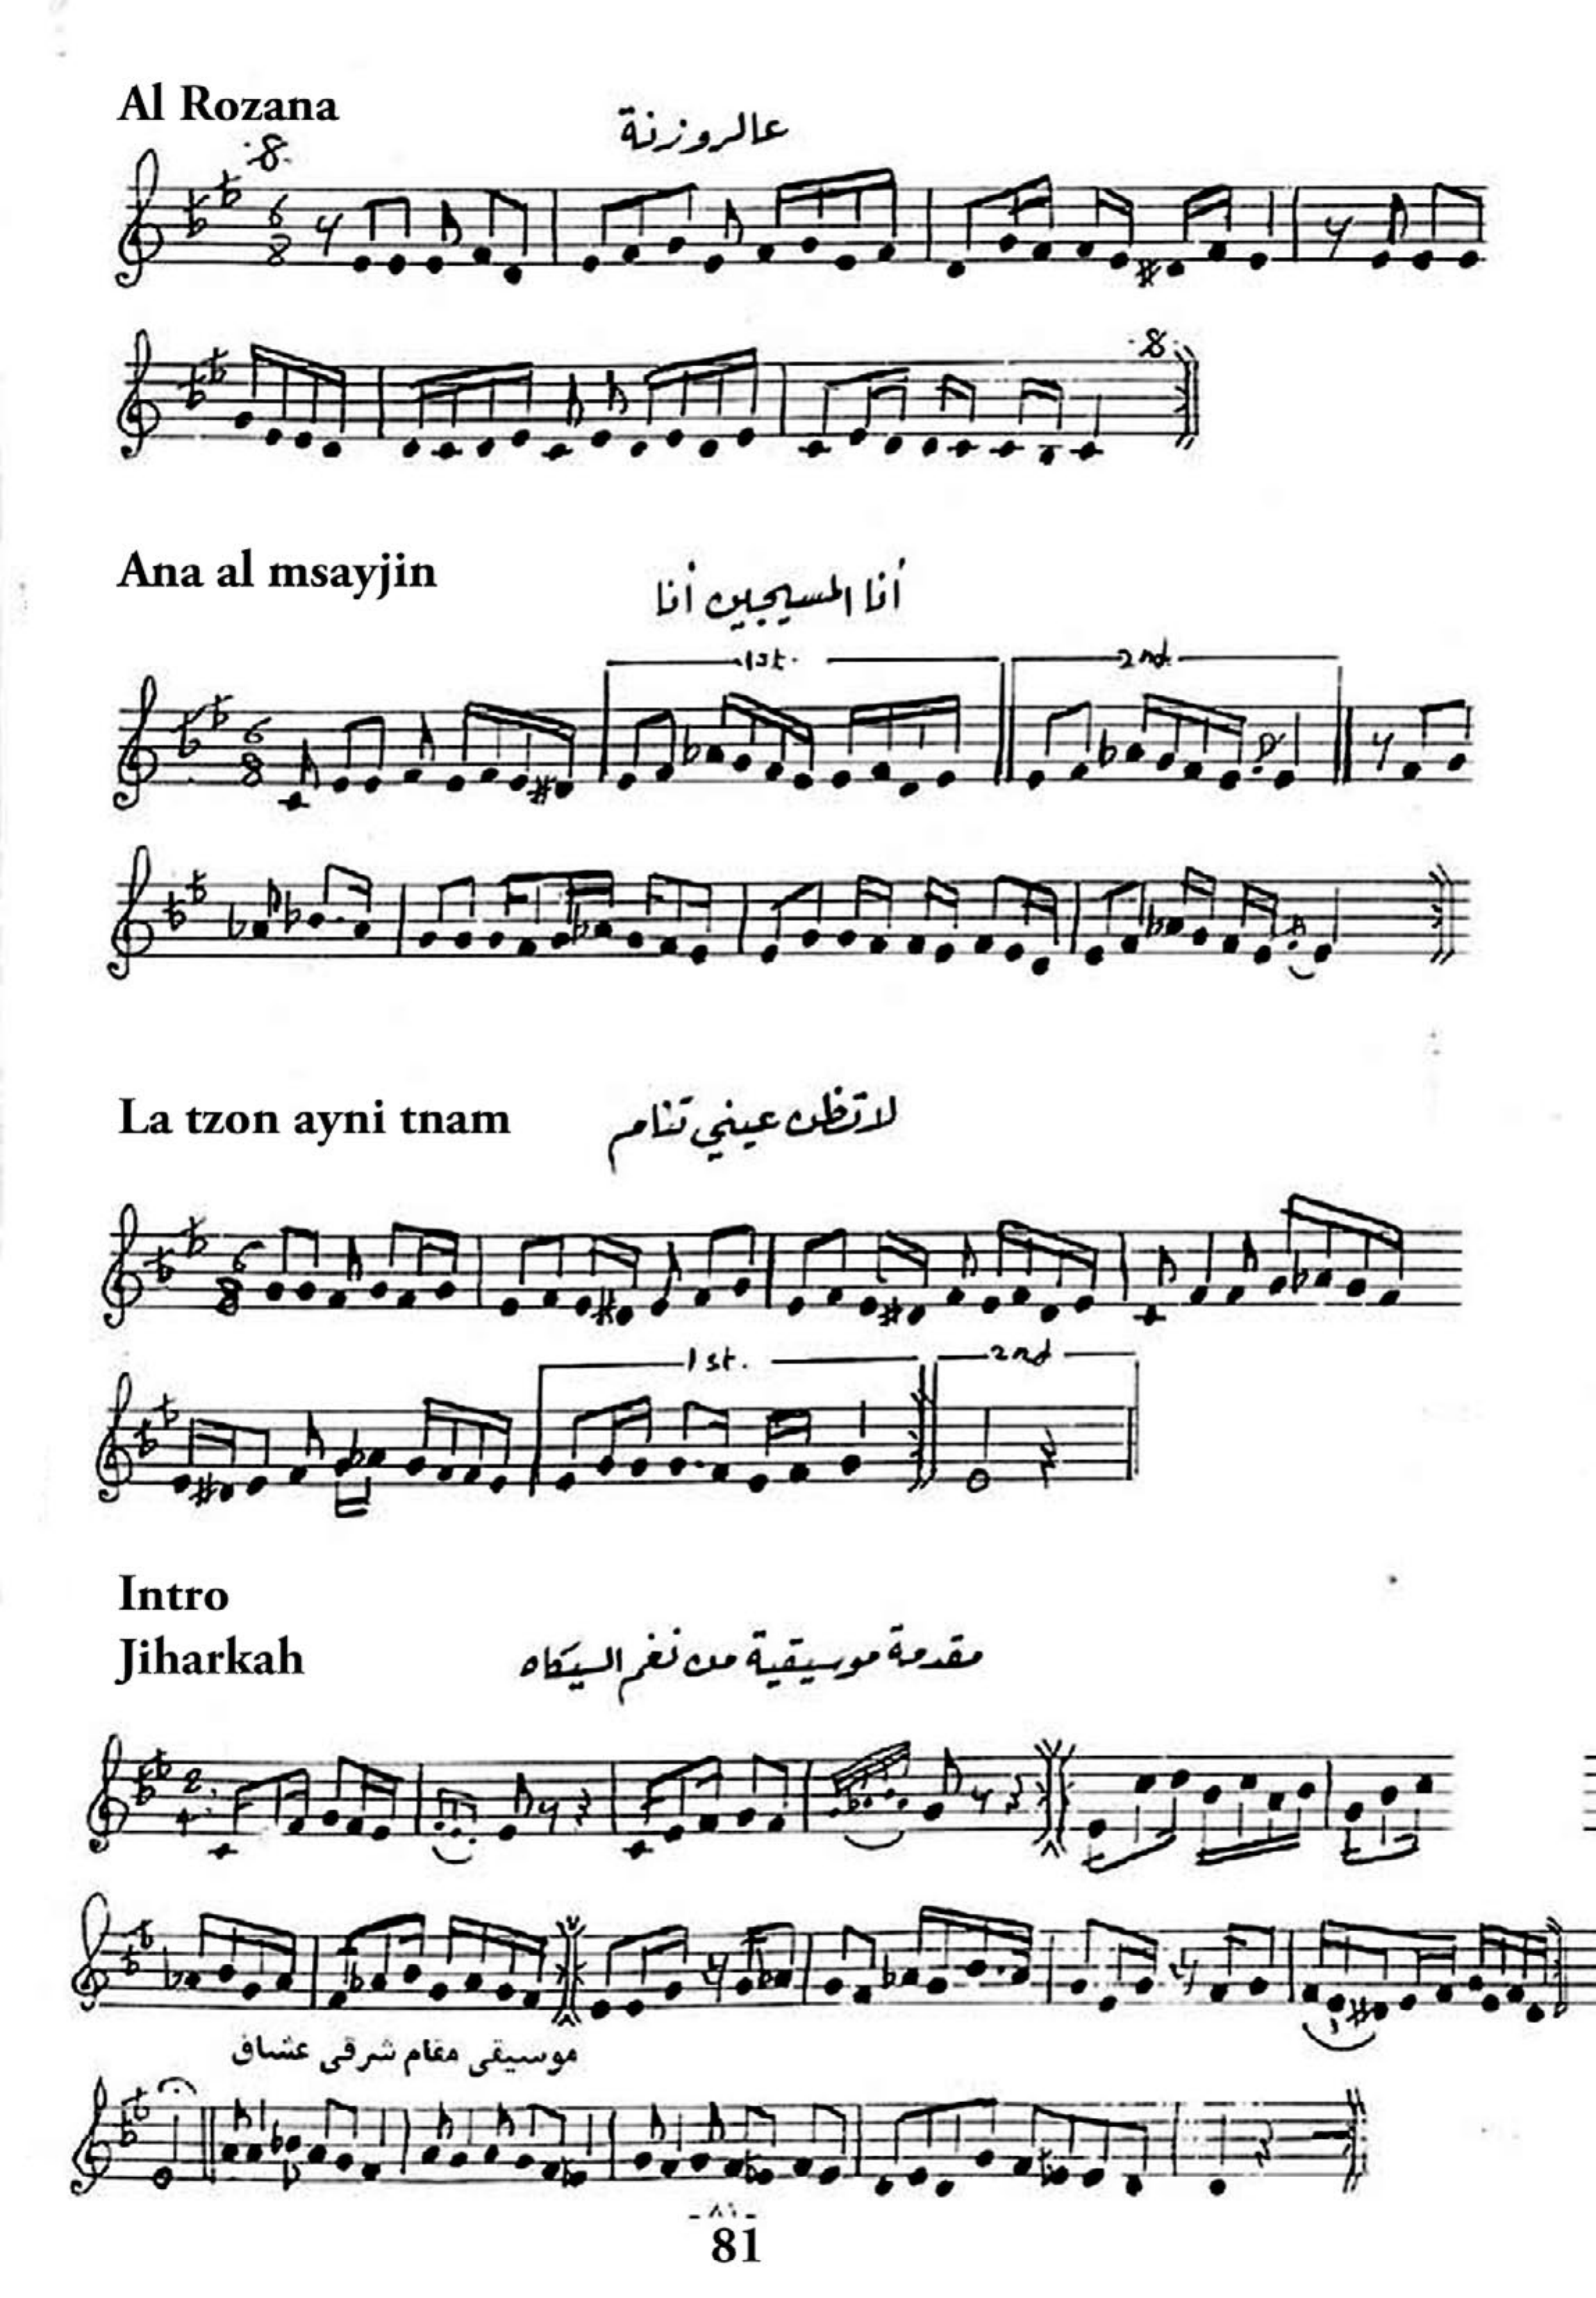 Al Rozana
عالروزنة
Ana al msayjin
أنا المسيجين أنا
1st. 2nd.
La tzon ayni tnam
لا تظن عيني تنام
1st. 2nd
Intro
Jiharkah
مقدمة موسيقية من نغم السيكاه
موسيقى مقام شرقي عشاق
- ٨١ -
81